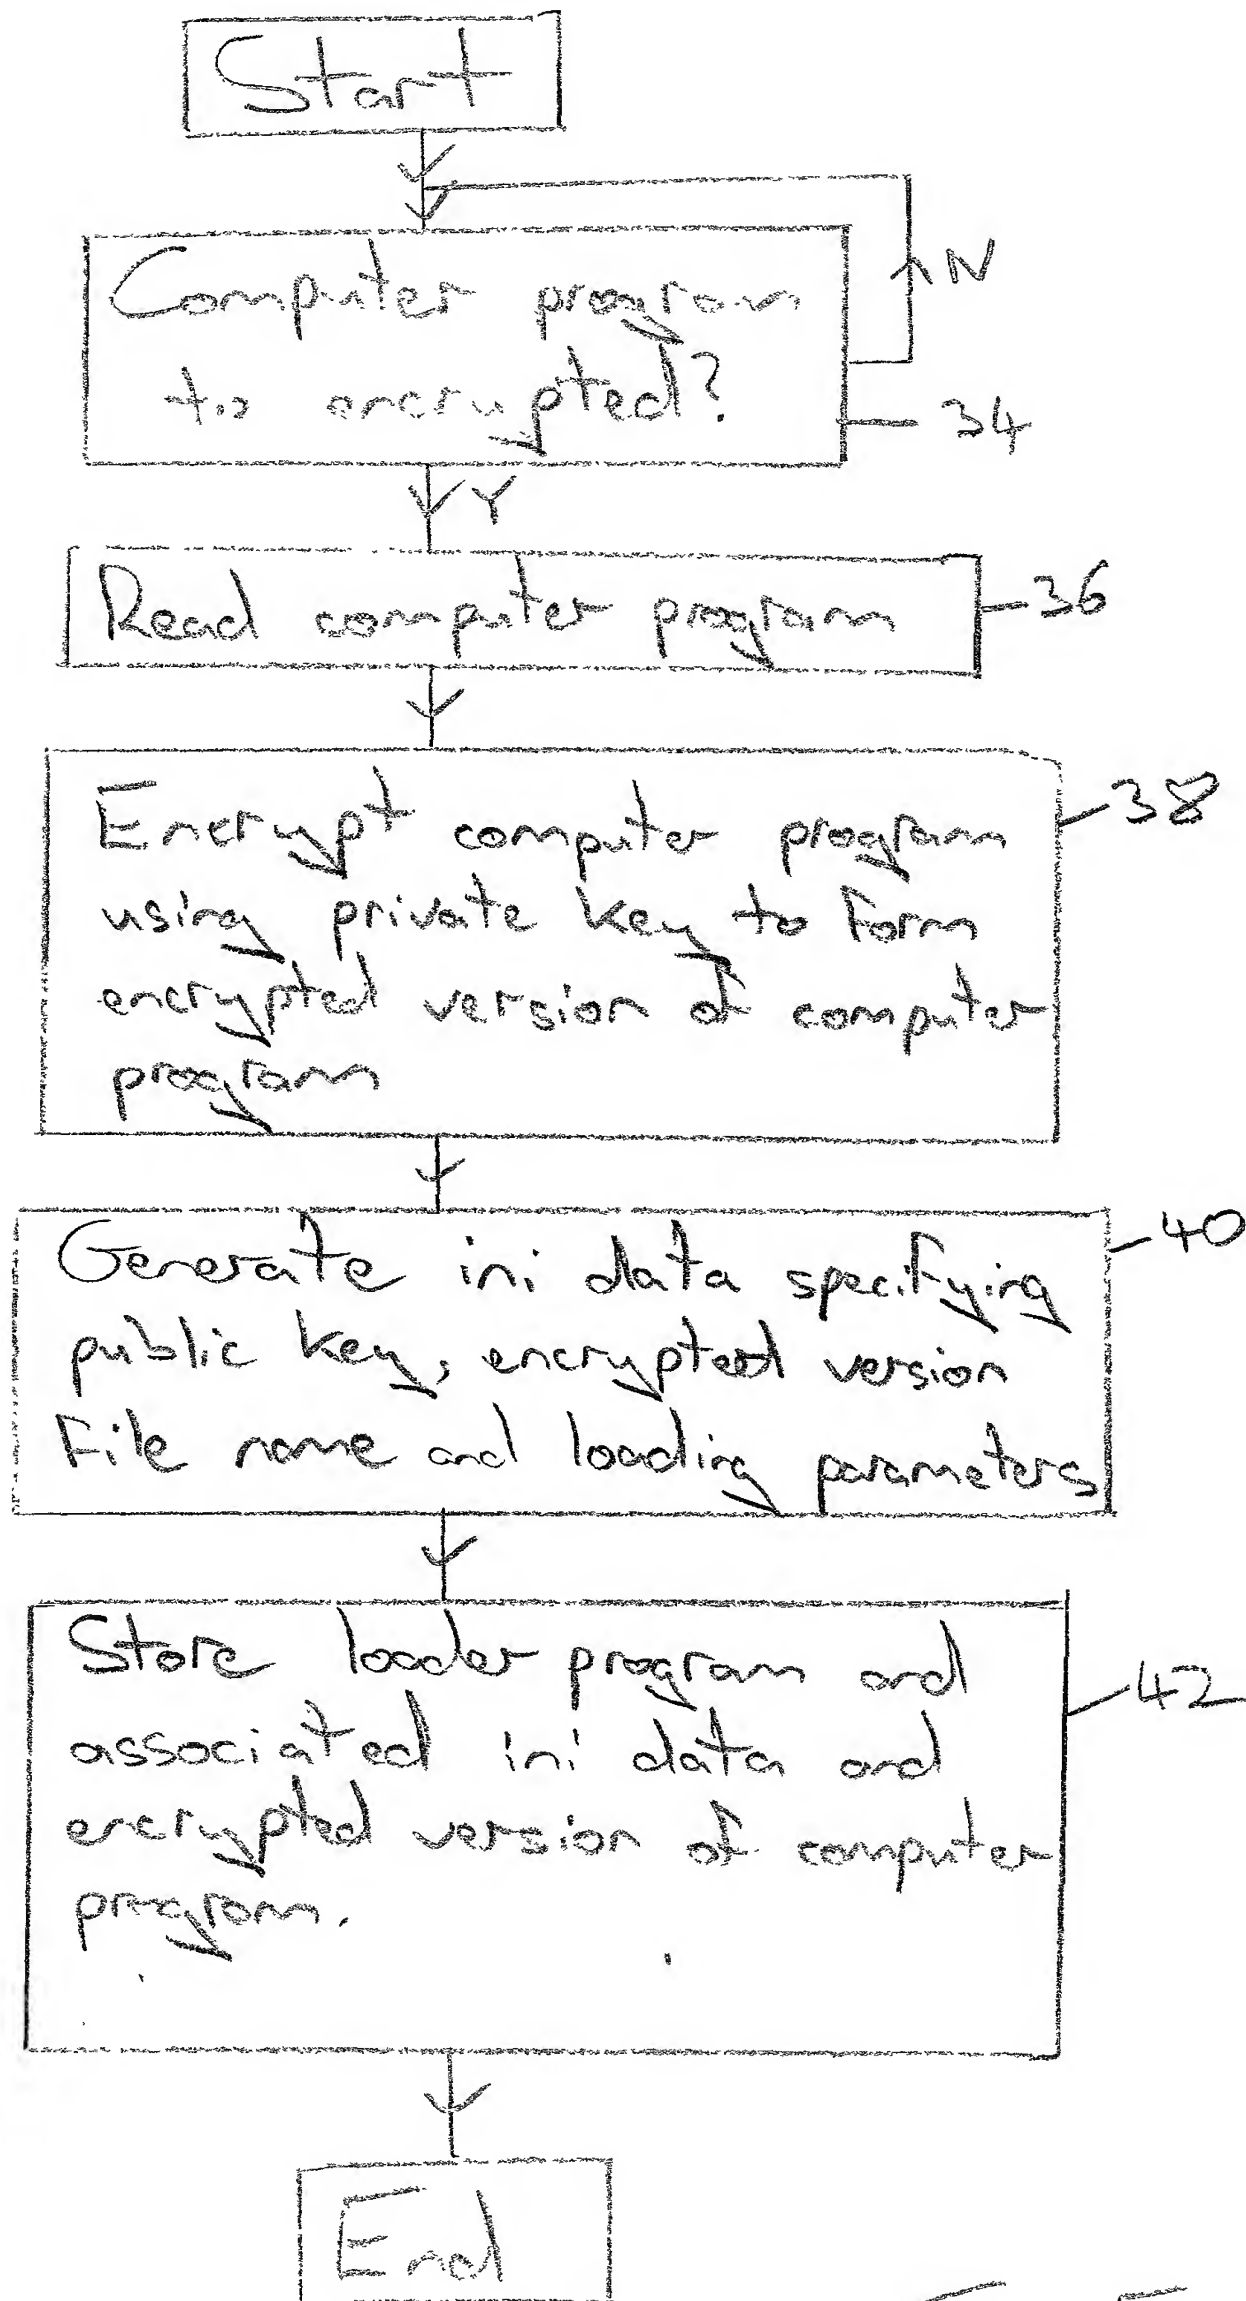 Start
N
Computer program
to encrypted?
34
Y
Read computer program
36
Encrypt computer program
38
using private key to form
encrypted version of computer
program
Generate ini data specifying
40
public key, encrypted version
File name and loading parameters
Store loader program and
42
associated ini data and
encrypted version of computer
program.
End